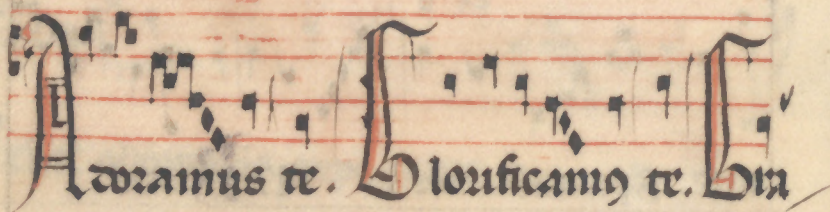 Adoramus te. Glorificamꝰ te. Gra